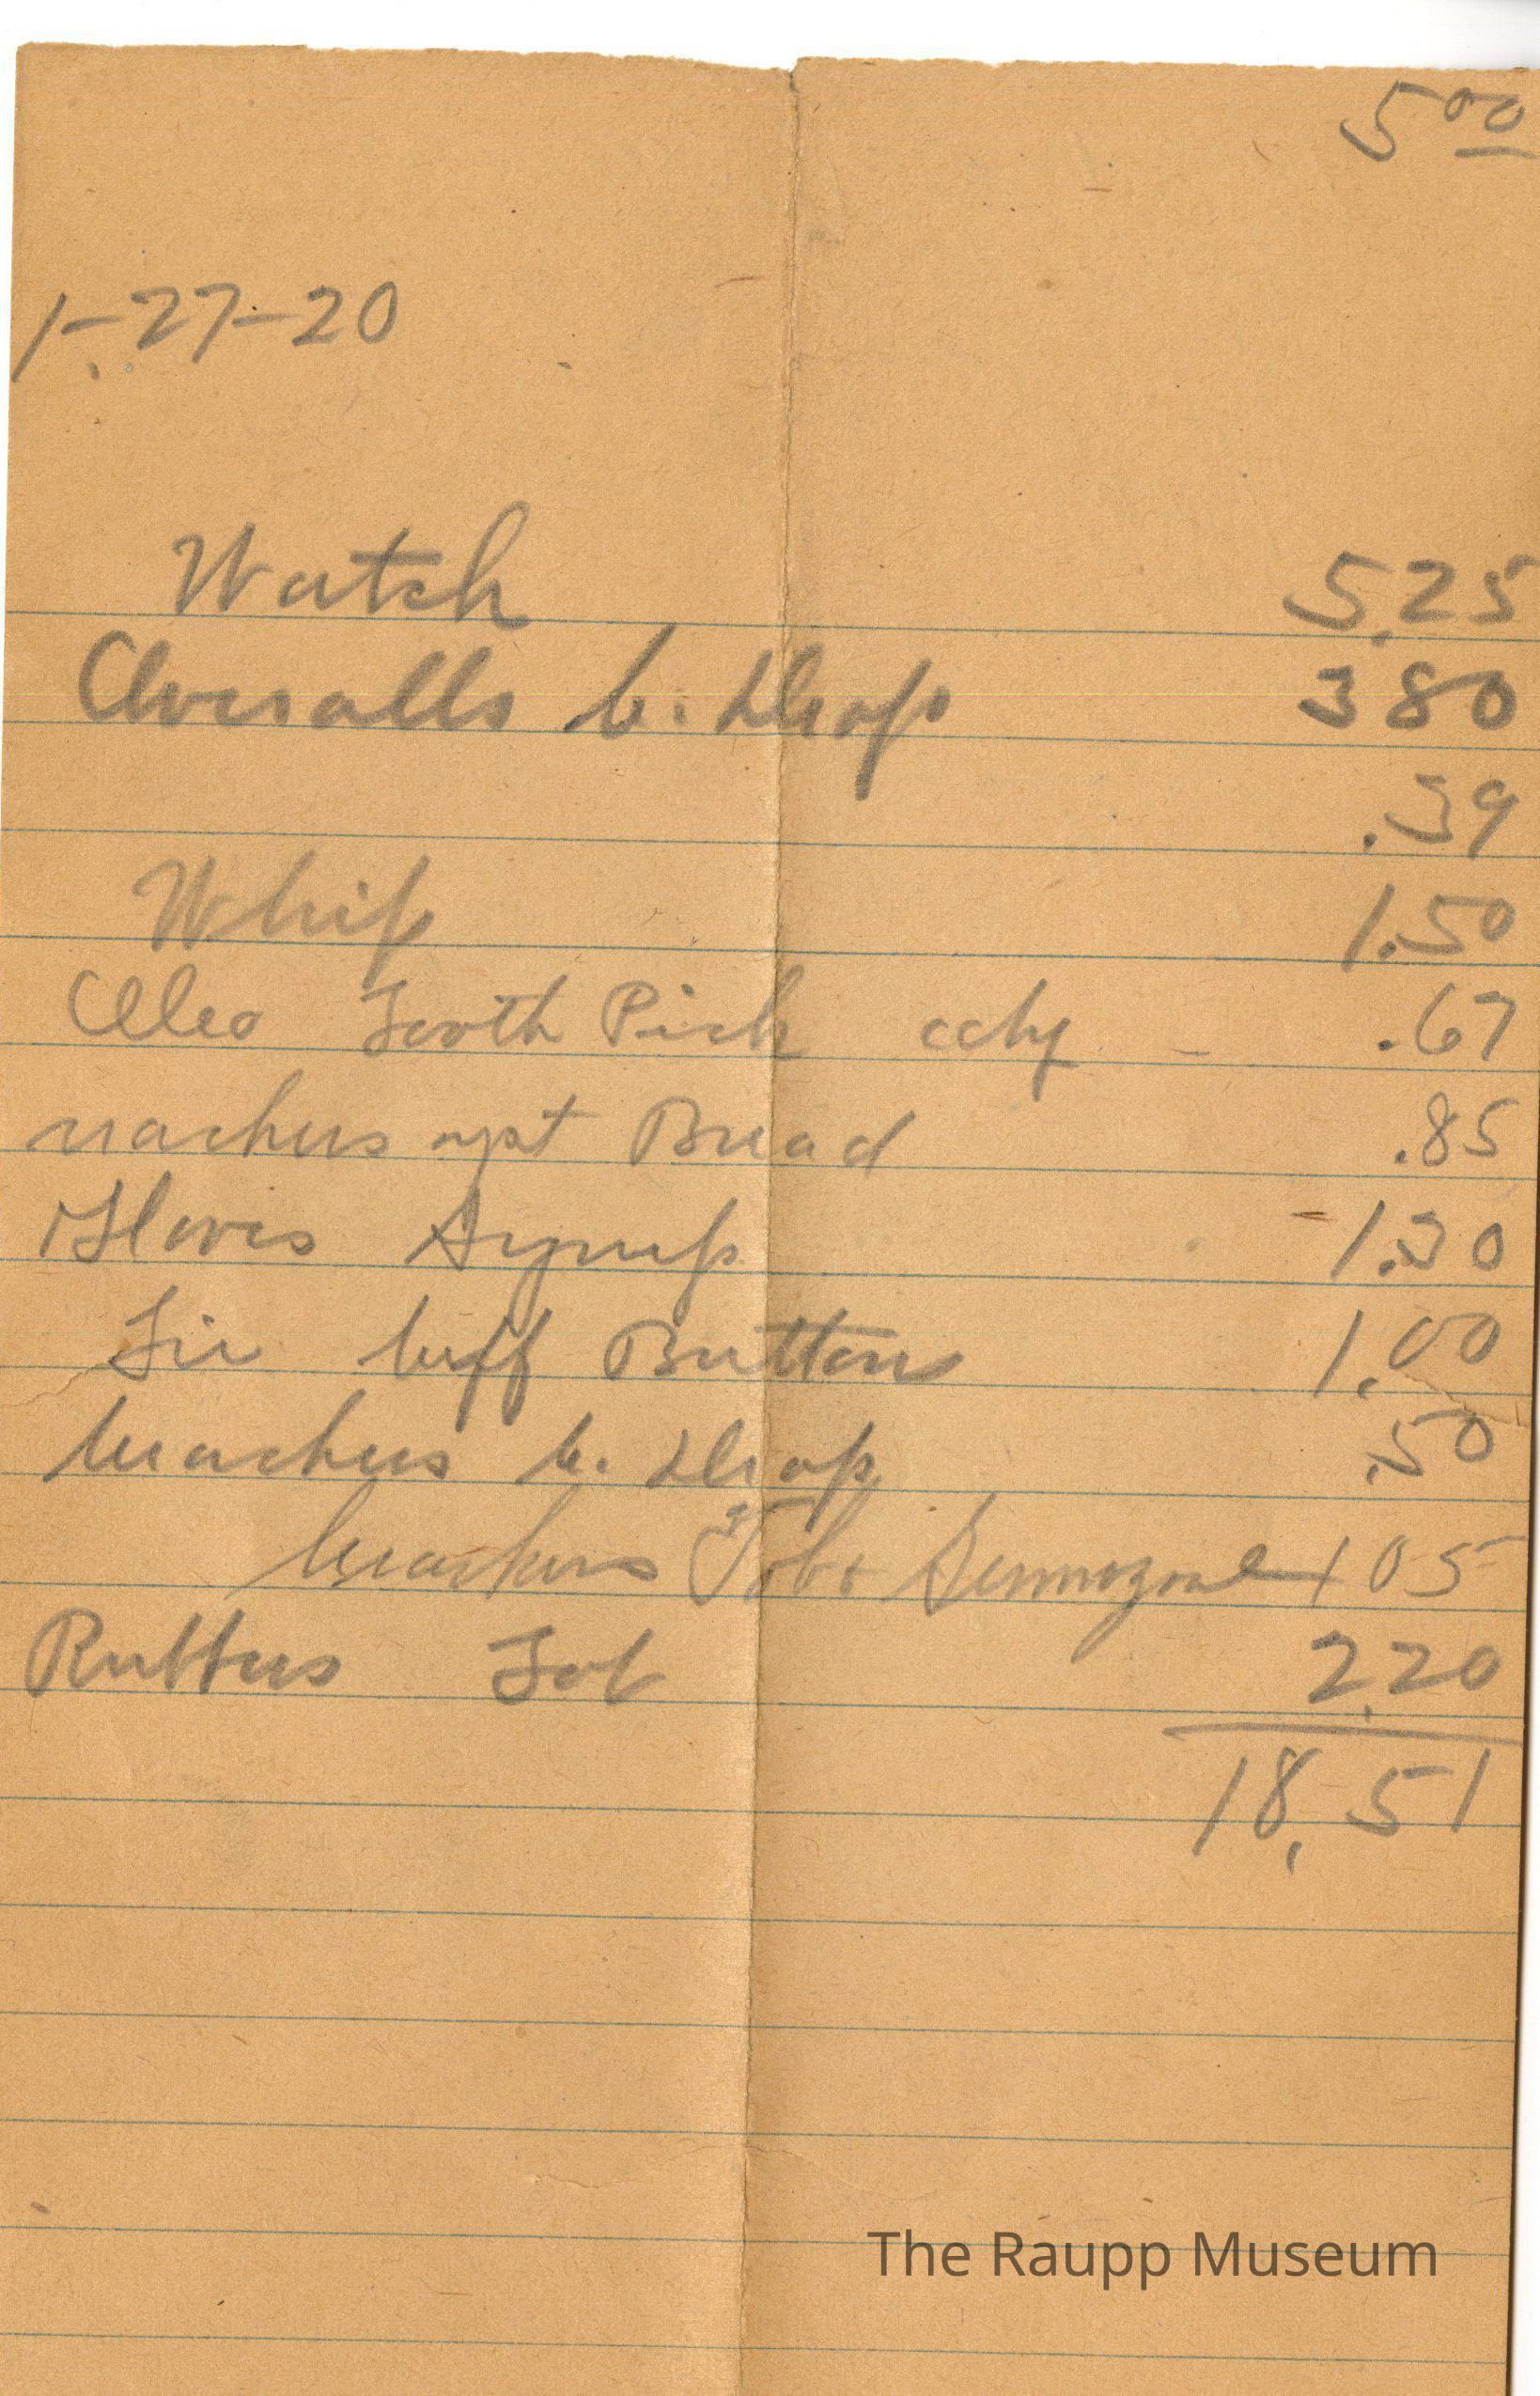 5 00
1-27-20
Watch 5.25
Overalls C. Drop 3 80
.39
Whip 1.50
Oleo Tooth Pick .67
Bread .85
Gloves Syrup 1.30
Tie Cuff Buttons 1.00
Crackers C. Drop .50
Crackers 1 05
Rubbers Tob 2.20
18.51
The Raupp Museum